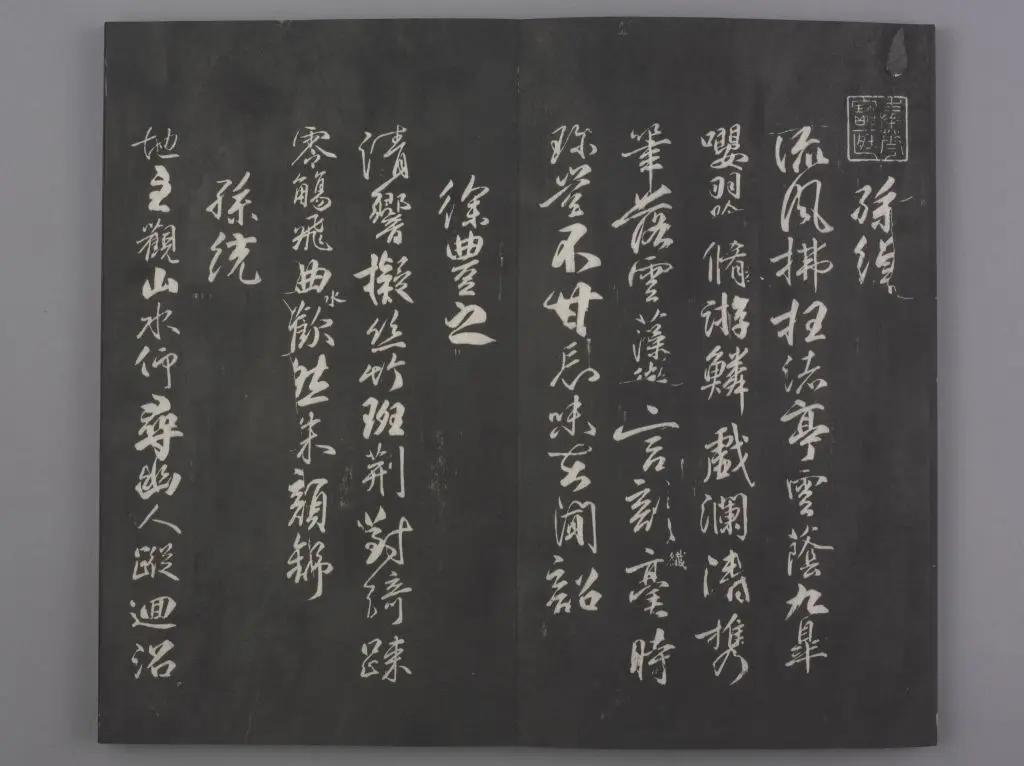 孫綽
流風拂枉渚亭雲蔭九皐
嚶羽吟脩游鱗戲瀾濤携
筆落雲藻微言剖纖毫時
珎豈不甘忘味在聞韶
徐豐之
清響擬絲竹班荊對綺疎
零觴飛曲水歡然朱顔舒
孫統
地主觀山水仰尋幽人蹤迴沼